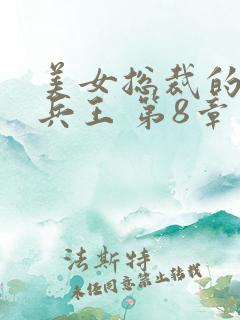 美女总裁的
兵王 第8章
法斯特
未经同意禁止转载